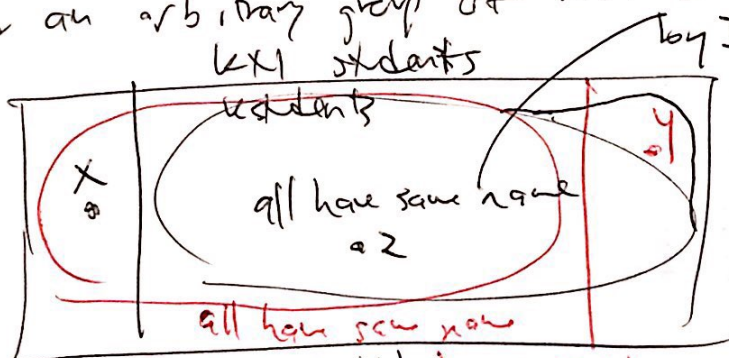 an arbitrary group of
k+1 students
k students
by
y
x
all have same name
z
all have same name